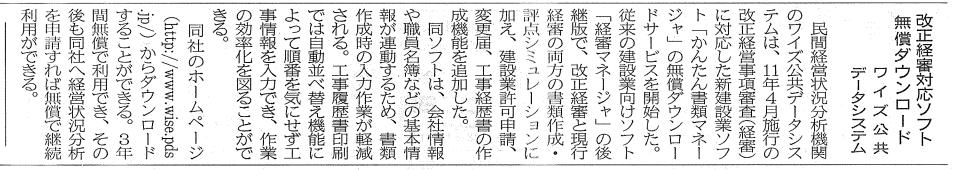 改正経審対応ソフト
無償ダウンロード
ワイズ公共
データシステム
民間経営状況分析機関
のワイズ公共データシス
テムは、11年4月施行の
改正経営事項審査（経審）
に対応した新建設業ソフ
ト「かんたん書類マネー
ジャ」の無償ダウンロー
ドサービスを開始した。
従来の建設業向けソフト
「経審マネージャ」の後
継版で、改正経審と現行
経審の両方の書類作成・
評点シミュレーションに
加え、建設業許可申請、
変更届、工事経歴書の作
成機能を追加した。
同ソフトは、会社情報
や職員名簿などの基本情
報が連動するため、書類
作成時の入力作業が軽減
される。工事履歴書印刷
では自動並べ替え機能に
よって順番を気にせず工
事情報を入力でき、作業
の効率化を図ることがで
きる。
同社のホームページ
（http://www.wise.pds
.jp/）からダウンロード
することができる。3年
間無償で利用でき、その
後も同社へ経営状況分析
を申請すれば無償で継続
利用ができる。